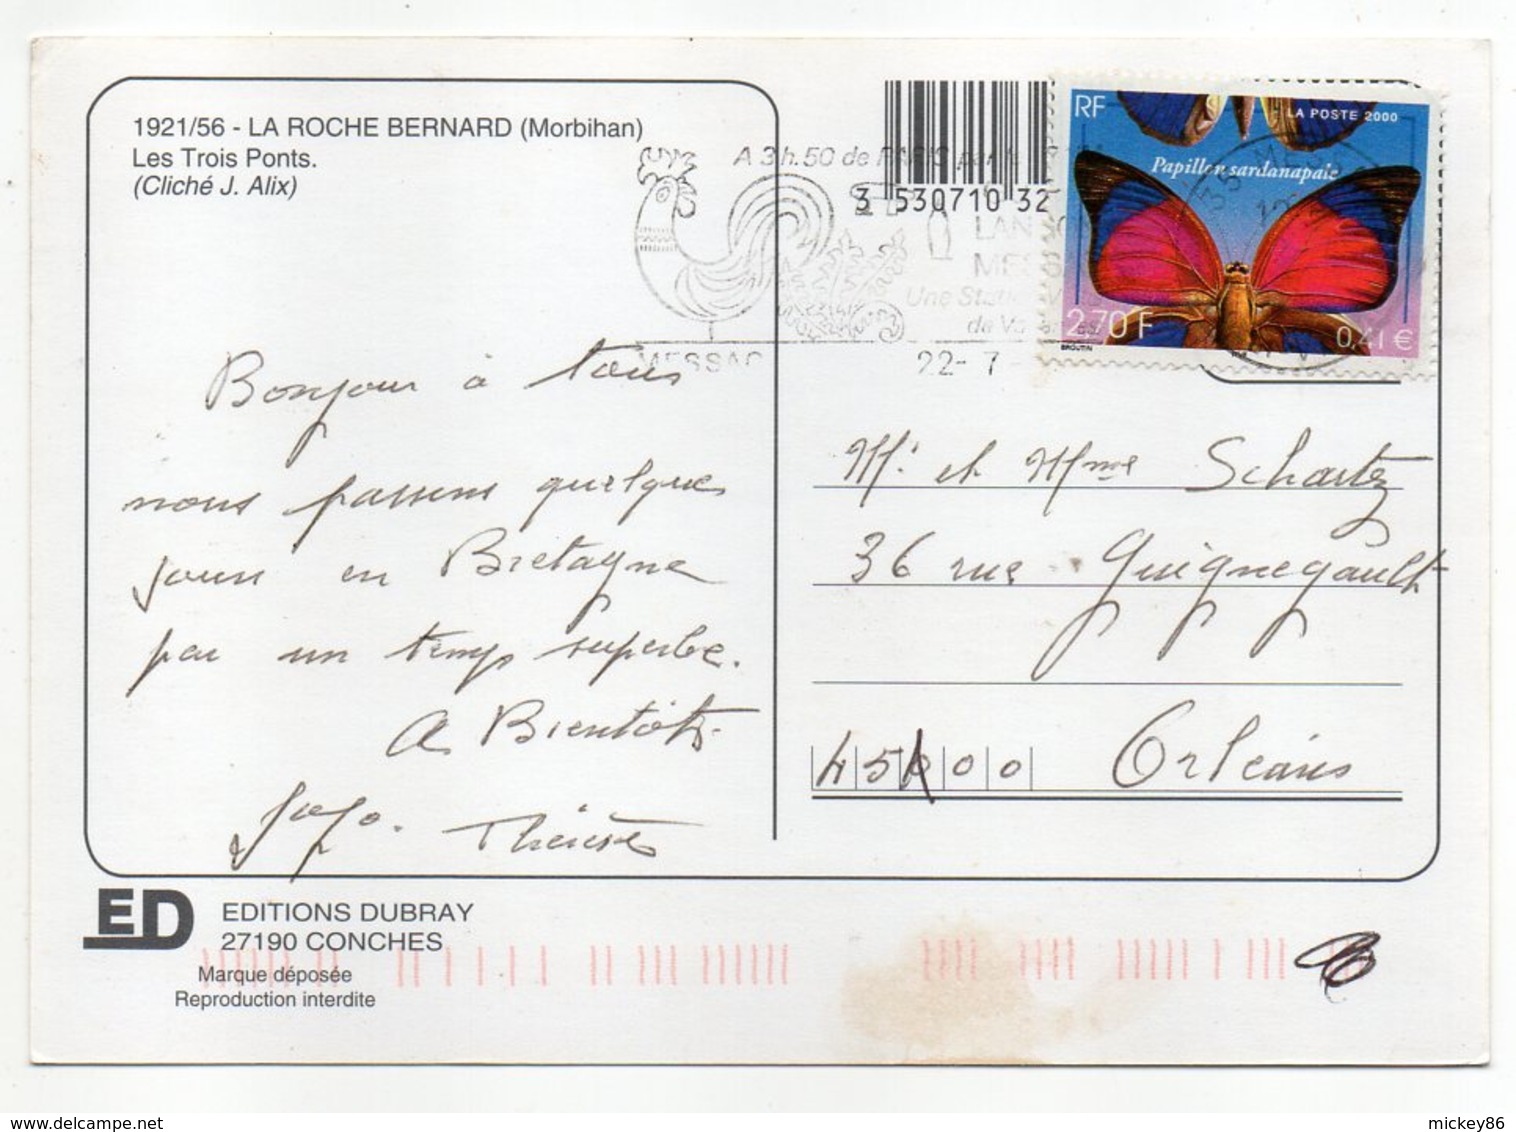 1921/56 - LA ROCHE BERNARD (Morbihan)
Les Trois Ponts.
(Cliché J. Alix)
3 530710 32
A 3h.50 de PARIS par le
LAN
MES
Une Stati
de Va
MESSAC
22- 7 -
RF
LA POSTE 2000
Papillon sardanapale
35 MESS
2.70 F
0,41 €
BROUTIN
Bonjour à tous
nous passons quelques
jours en Bretagne
par un temps superbe.
A Bientôt
Jojo. Thérèse
Mr et Mme Schartz
36 rue Guignegault
45000 Orléans
ED
EDITIONS DUBRAY
27190 CONCHES
Marque déposée
Reproduction interdite
mickey86
www.delcampe.net